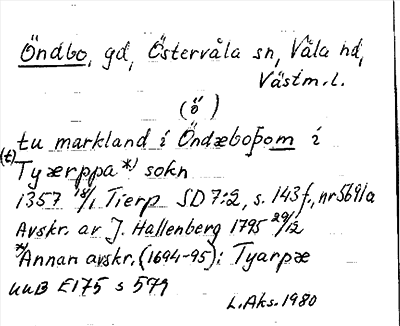 Öndbo, gd, Östervåla sn, Våla hd,
Västm.l.
(ö)
tu markland i Öndæboþom i
(t) Tyærppa *) sokn
1357 18/1 Tierp SD 7:2, s. 143 f, nr 5691a
Avskr. av J. Hallenberg 1795 29/12
*) Annan avskr. (1694-95): Tyarpæ
UUB E175 s 579
L. Aks. 1980